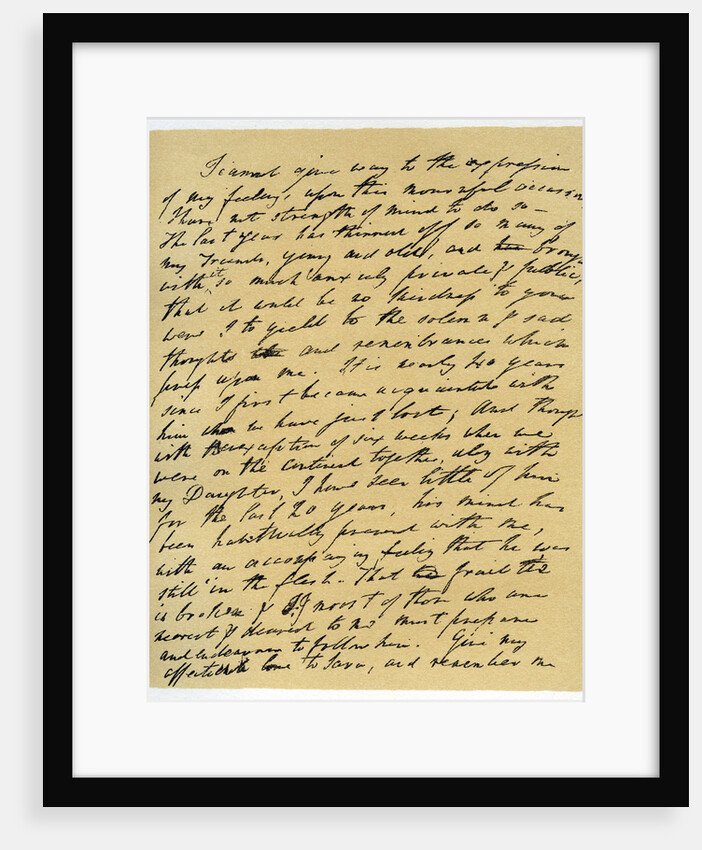 I cannot give way to the expression
of my feelings upon this mournful occasion
I have not strength of mind to do so —
The last year has thinned off so many of
my Friends, young and old, and brought
with it so much anxiety private & public,
that it would be no kindness to you
were I to yield to the solemn & sad
thoughts and remembrances which
press upon me. It is nearly 40 years
since I first became acquainted with
him we have just lost; And though
with the exception of six weeks when we
were on the continent together, along with
my Daughter, I have seen little of him
for the last 20 years, his mind has
been habitually present with me,
with an accompanying feeling that he was
still in the flesh. That frail tie
is broken & I, & most of those who are
nearest & dearest to me must prepare
and endeavour to follow him. Give my
affectionate love to Sara, and remember me